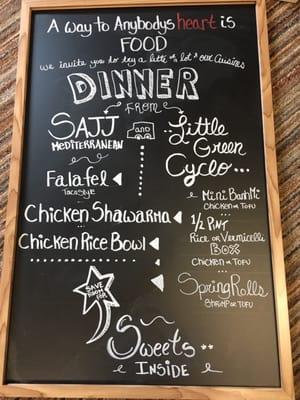 A way to Anybodys heart is
FOOD
we invite you to try a little of lot's our Cuisines
DINNER
FROM
SAJJ
MEDITERRANEAN
Falafel
Taco Style
Chicken Shawarma
Chicken Rice Bowl
and
Little
Green
Cyclo...
Mini BanhMi
Chicken or Tofu
1/2 Pint
Rice or Vermicelli
BOX
Chicken or Tofu
Spring Rolls
Shrimp or Tofu
SAVE
ROOM
FOR
Sweets
INSIDE